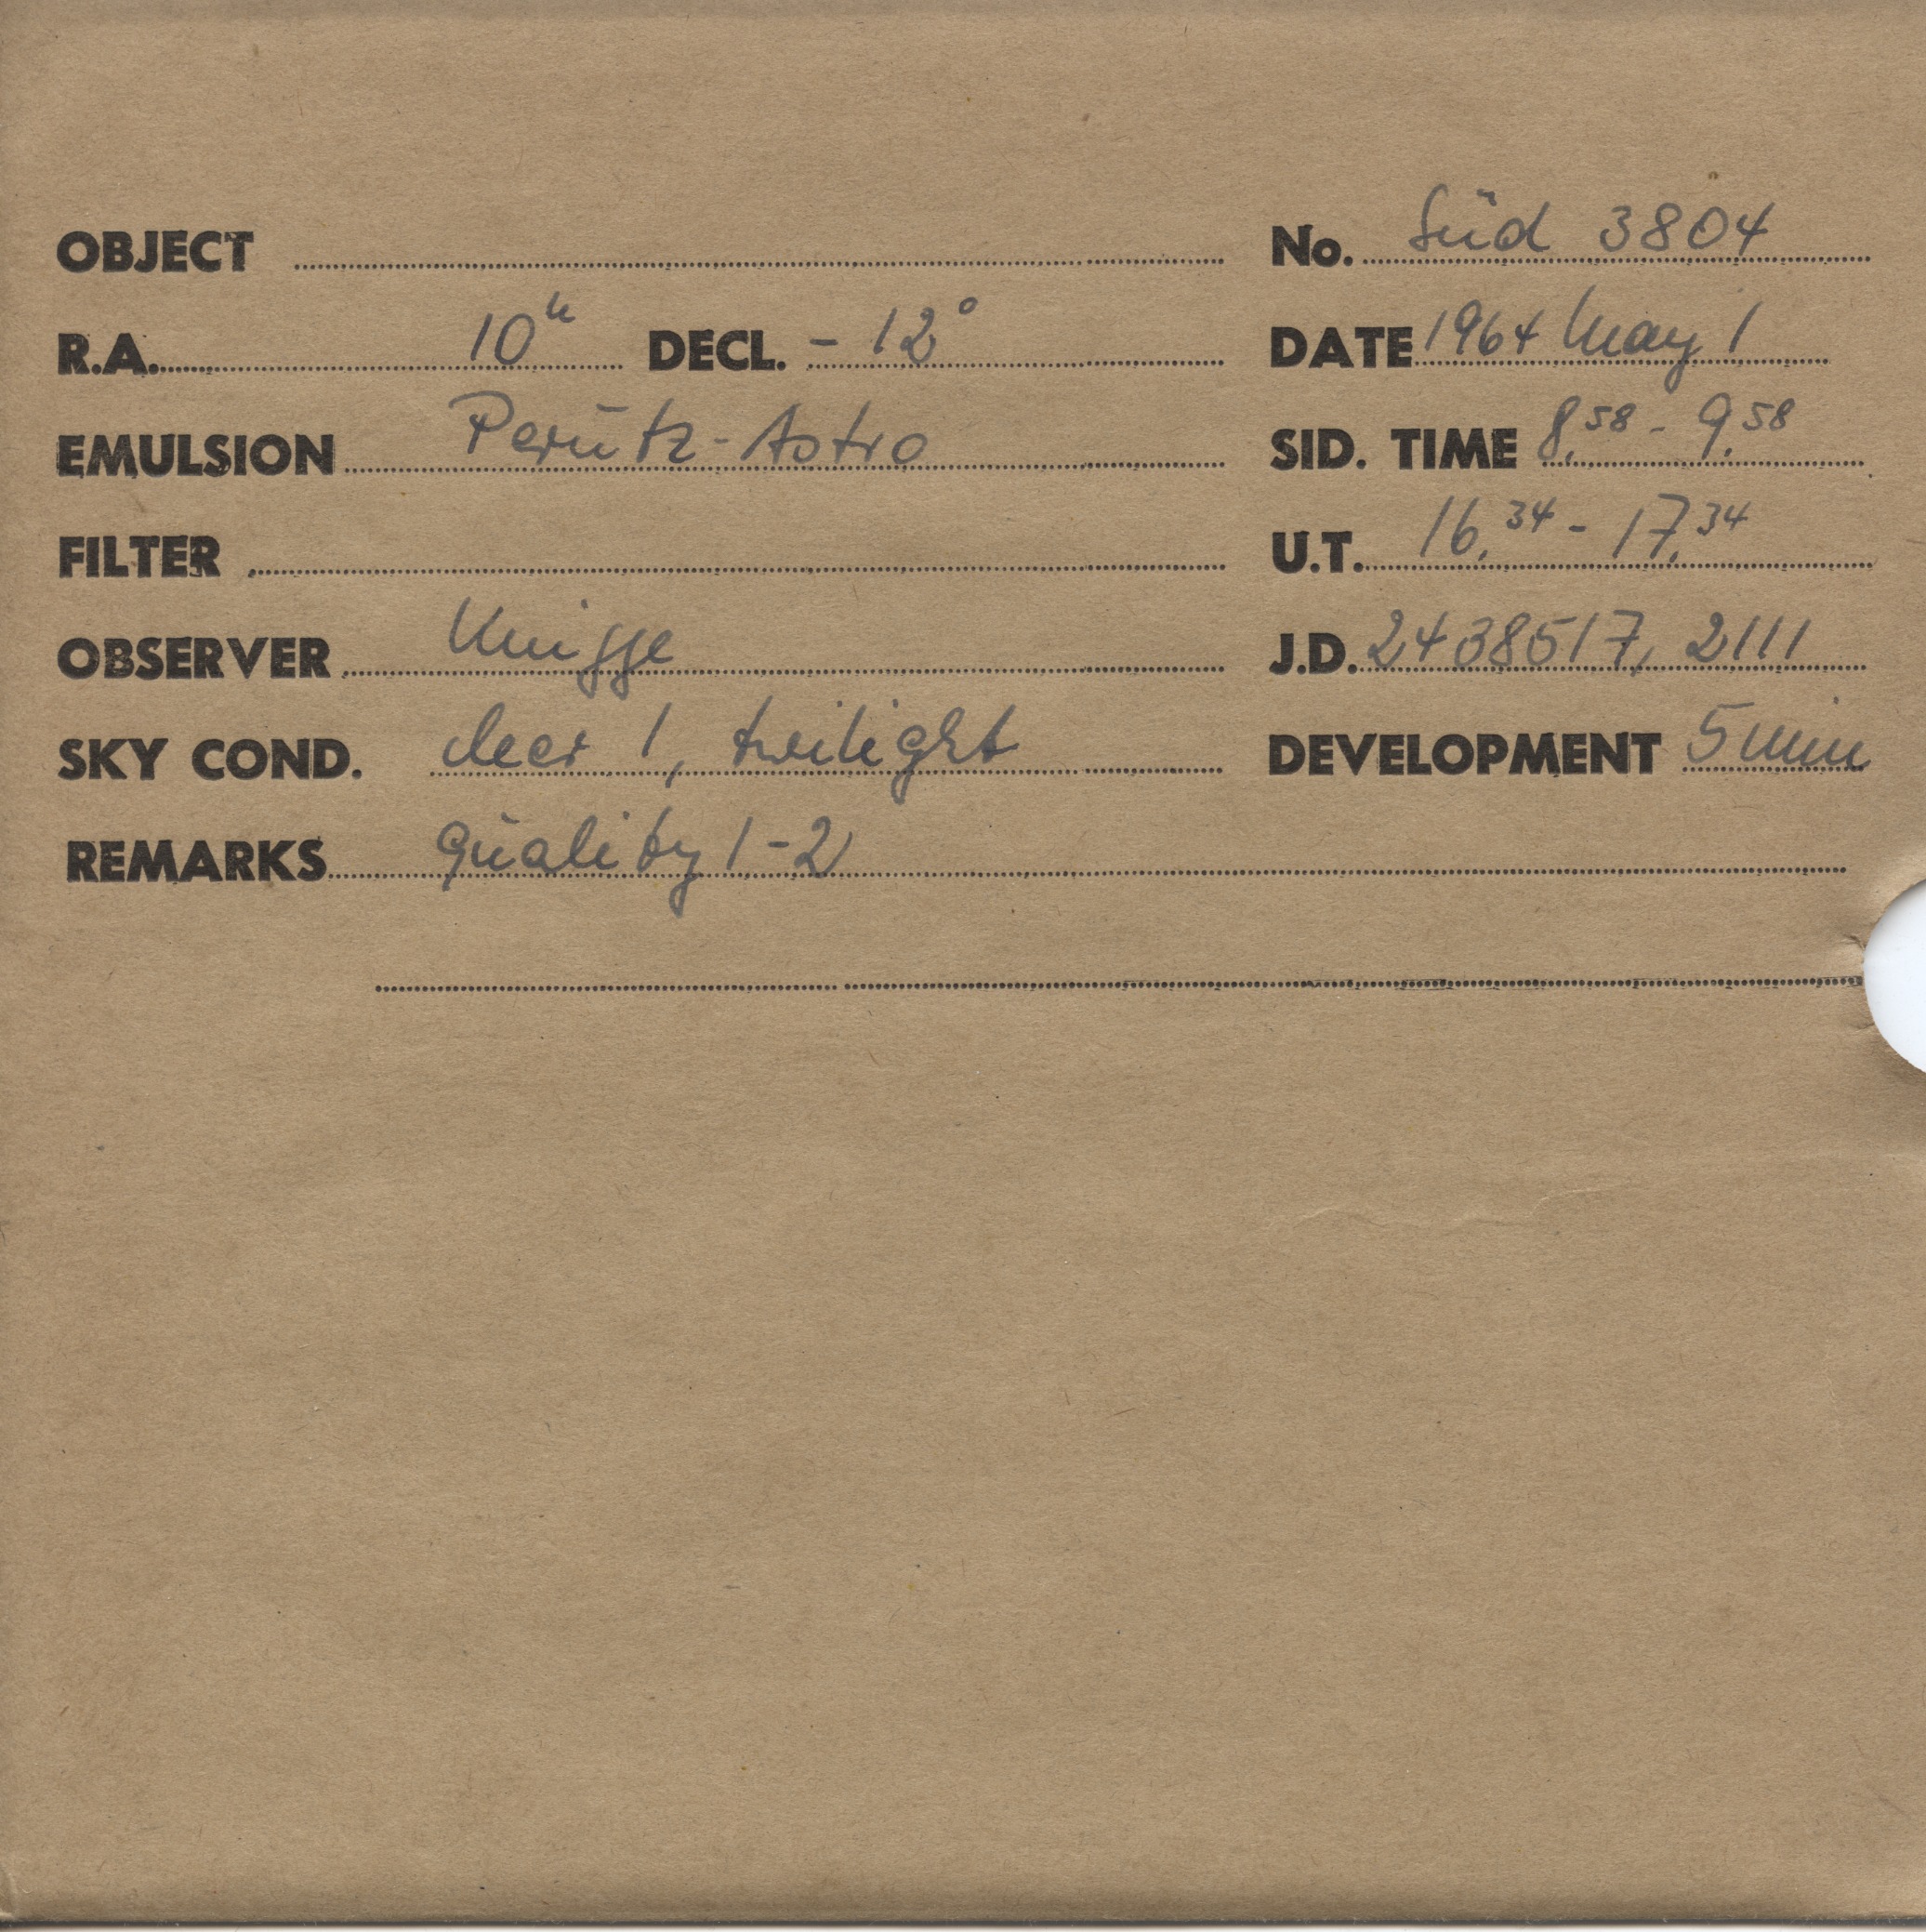 OBJECT No. Süd 3804
R.A. 10h DECL. - 12° DATE 1964 May 1
EMULSION Perutz-Astro SID. TIME 8.58 - 9.58
FILTER U.T. 16.34 - 17.34
OBSERVER Knigge J.D. 2438517, 2111
SKY COND. clear 1, twilight DEVELOPMENT 5 min
REMARKS quality 1-2